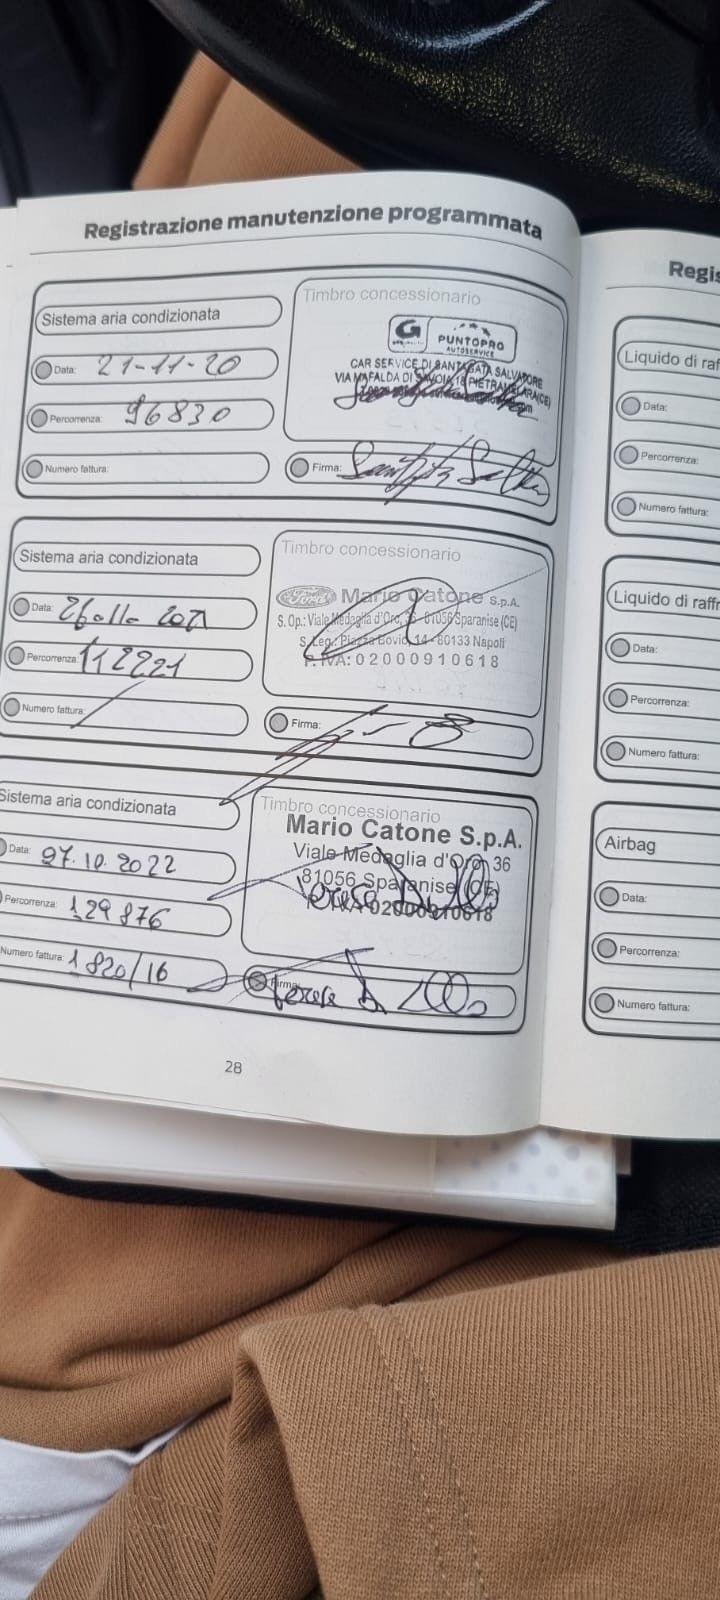 Registrazione manutenzione programmata
Sistema aria condizionata
Data: 21-11-20
Percorrenza: 96830
Numero fattura:
Timbro concessionario
G PUNTOPRO
AUTOSERVICE
CAR SERVICE DI SANTAGATA SALVATORE
VIA MAFALDA DI SAVOIA, 18 PIETRAMELARA (CE)
Firma:
Sistema aria condizionata
Data:
Percorrenza: 112221
Numero fattura:
Timbro concessionario
Ford Mario Catone S.p.A.
S. Op.: Viale Medaglia d'Oro, 36 - 81056 Sparanise (CE)
S. Leg.: Piazza Bovio, 14 - 80133 Napoli
P. IVA: 02000910618
Firma:
Sistema aria condizionata
Data: 27.10.2022
Percorrenza: 129876
Numero fattura: 1820/16
Timbro concessionario
Mario Catone S.p.A.
Viale Medaglia d'Oro, 36
81056 Sparanise (CE)
P. IVA 02000910618
Firma:
28
Regis
Liquido di raf
Data:
Percorrenza:
Numero fattura:
Liquido di raffr
Data:
Percorrenza:
Numero fattura:
Airbag
Data:
Percorrenza:
Numero fattura: